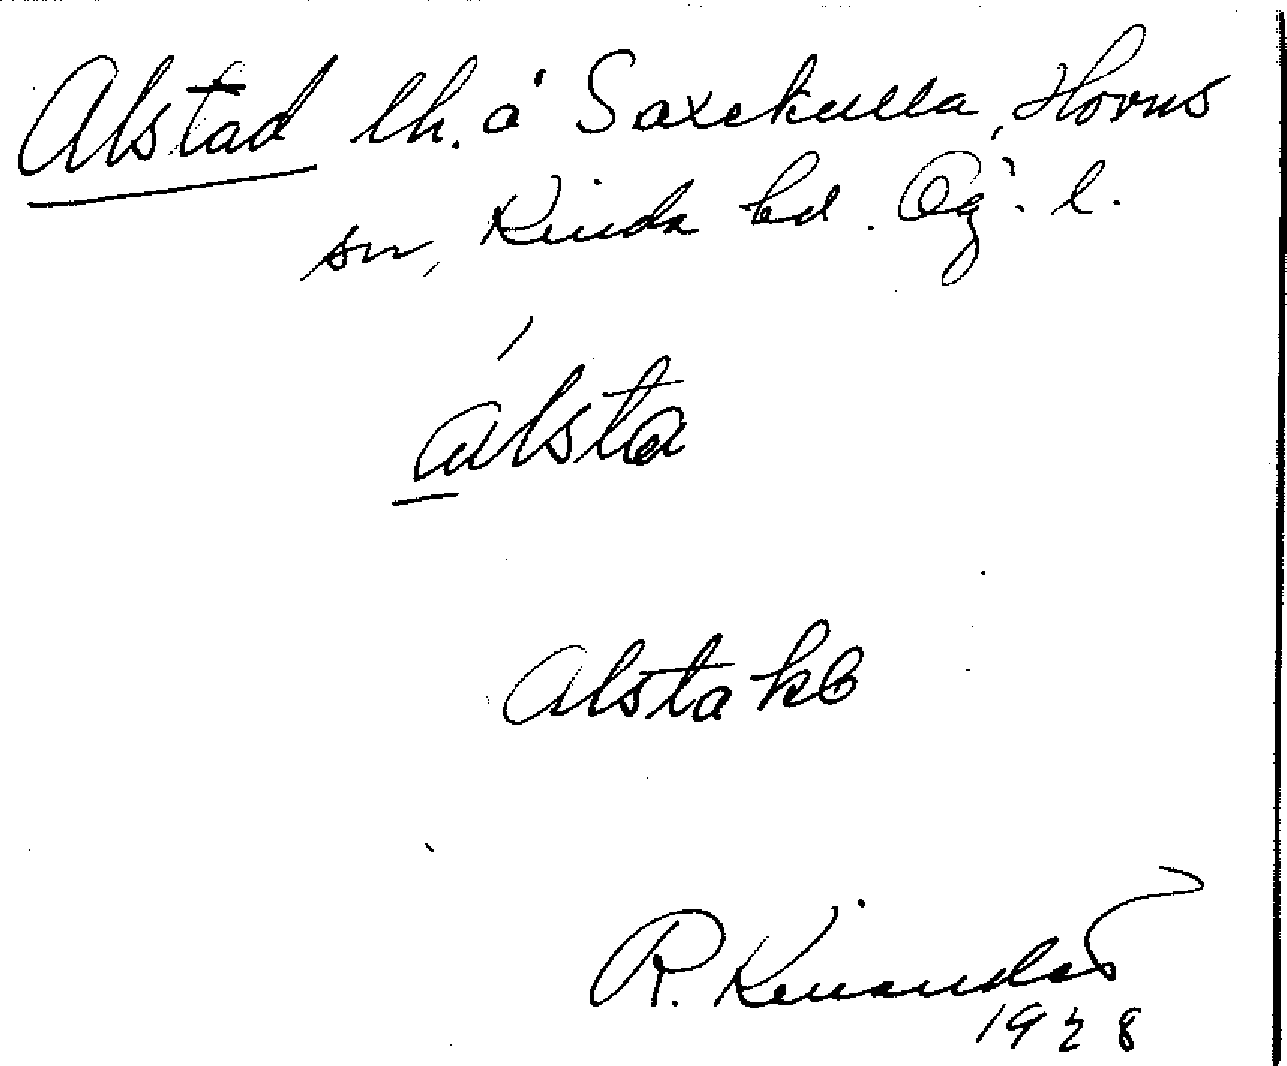 Alstad lh. å Saxekulla, Horns
sn, Kinda hd. Ög. l.
álsta
Alsta kb
R. Kinander
1928